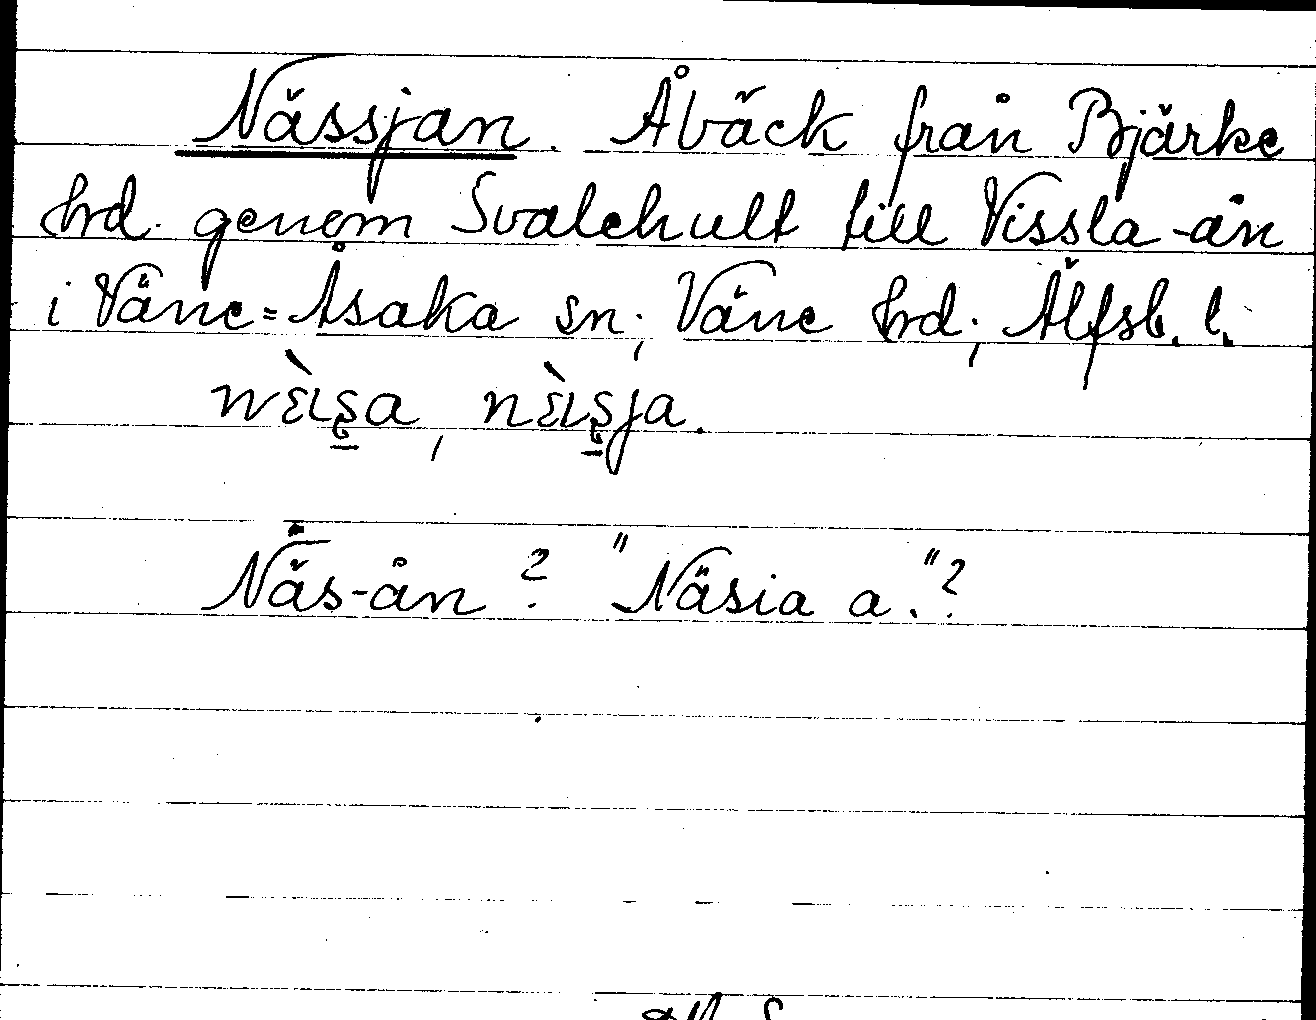 Nässjan. Åbäck från Bjärke
hrd. genom Svalehult till Vissla-ån
i Väne=Åsaka sn; Väne hrd; Älfsb. l.
nὲιşa, nὲιşja.
Näs-ån? "Näsia a."?